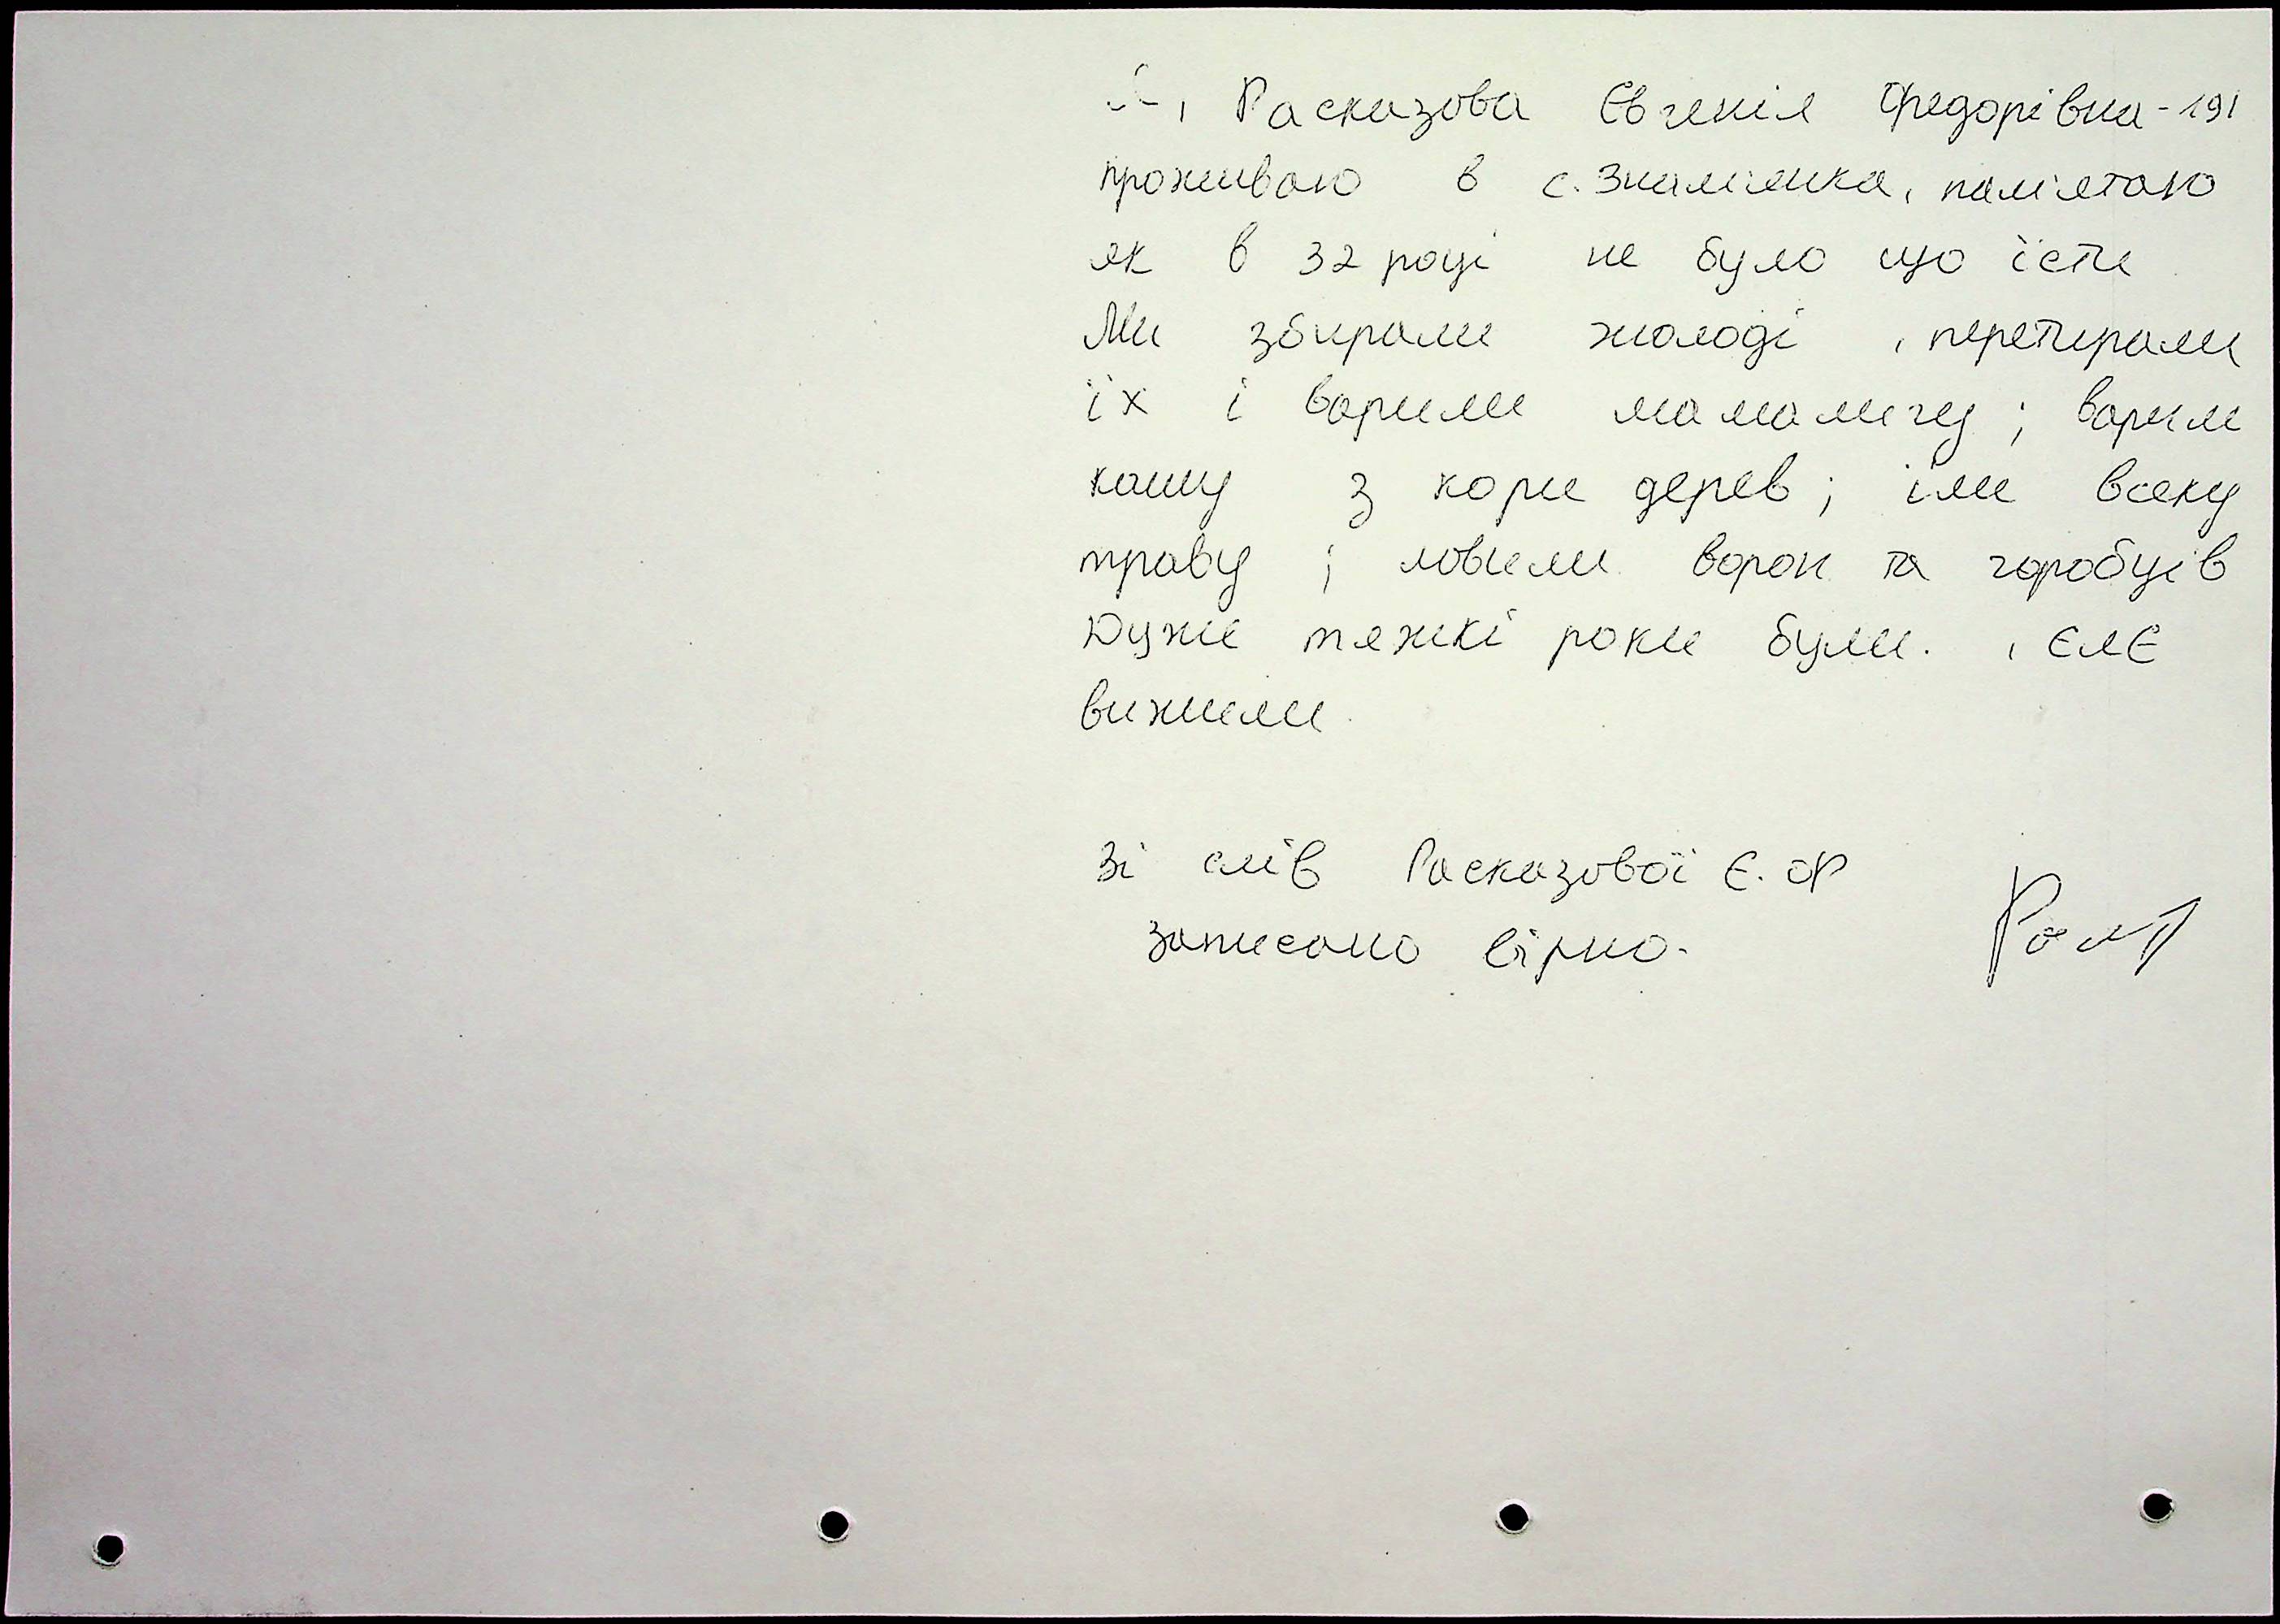 Я, Расказова Євгенія Федорівна - 191
проживаю в с. Знам'янка, пам'ятаю
як в 32 році не було що їсти
Ми збирали жолоді, перетирали
їх і варили мамалигу; варили
кашу з кори дерев; їли всяку
траву; ловили ворон та горобців
Дуже тяжкі роки були., єлє
вижили.
Зі слів Расказової Є. Ф
записано вірно.